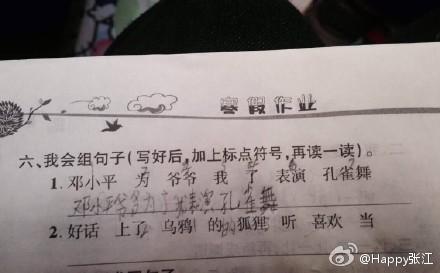 寒假作业
六、我会组句子(写好后,加上标点符号,再读一读)。
1. 邓小平 为 爷爷 我 了 表演 孔雀舞
邓小平爷爷为了我表演孔雀舞
2. 好话 上了 乌鸦 的 狐狸 听 喜欢 当
@Happy张江